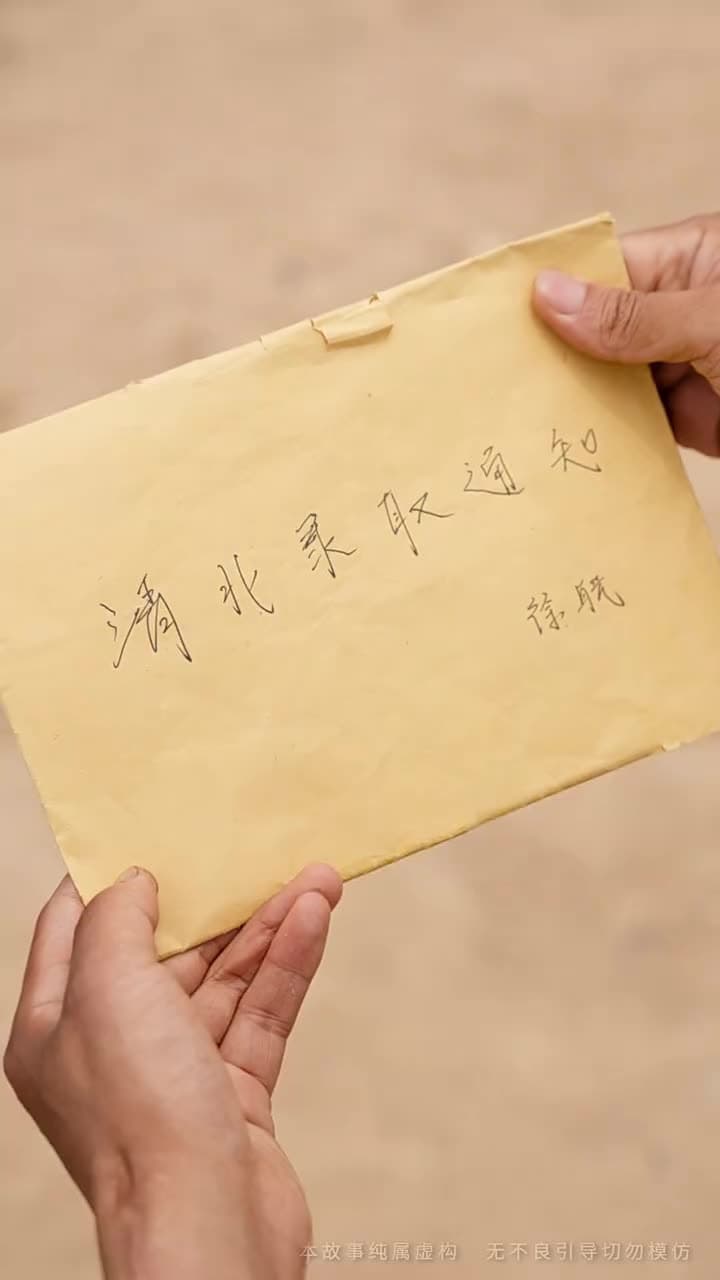 清北录取通知
徐晓
本故事纯属虚构 无不良引导切勿模仿